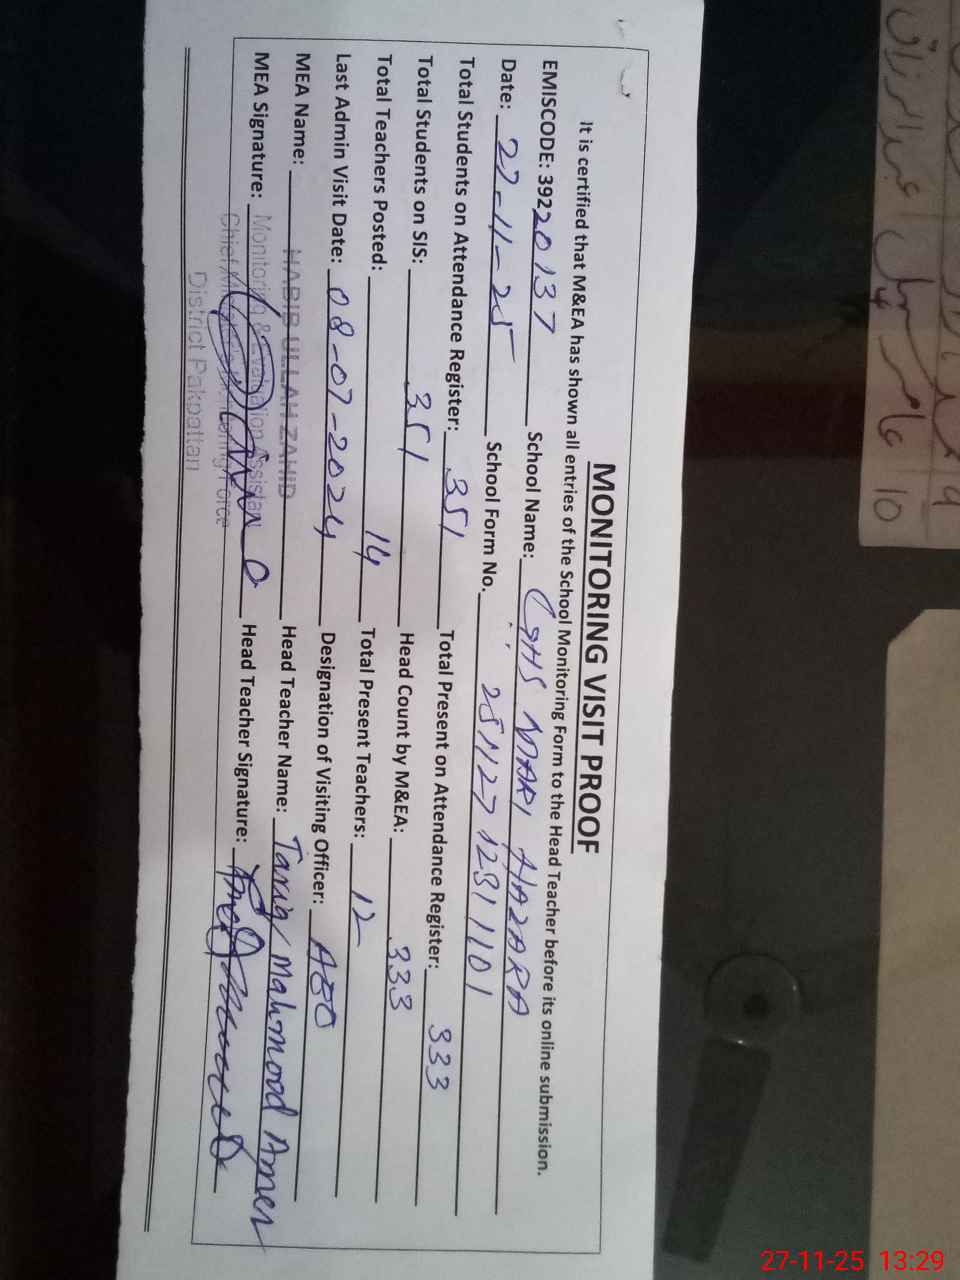 MONITORING VISIT PROOF
It is certified that M&EA has shown all entries of the School Monitoring Form to the Head Teacher before its online submission.
EMISCODE: 39220137 School Name: GHS MARI HAZARA
Date: 27-11-25 School Form No. 2511271231101
Total Students on Attendance Register: 351 Total Present on Attendance Register: 333
Total Students on SIS: 351 Head Count by M&EA: 333
Total Teachers Posted: 14 Total Present Teachers: 12
Last Admin Visit Date: 08-07-2024 Designation of Visiting Officer: AEO
MEA Name: HABIB ULLAH ZAHID Head Teacher Name: Tariq Mahmood Amer
MEA Signature: Head Teacher Signature:
Monitoring & Evaluation Assistant
Chief Monitoring Force
District Pakpattan
عبدالرزاق
9
عامر سہیل
10
27-11-25 13:29